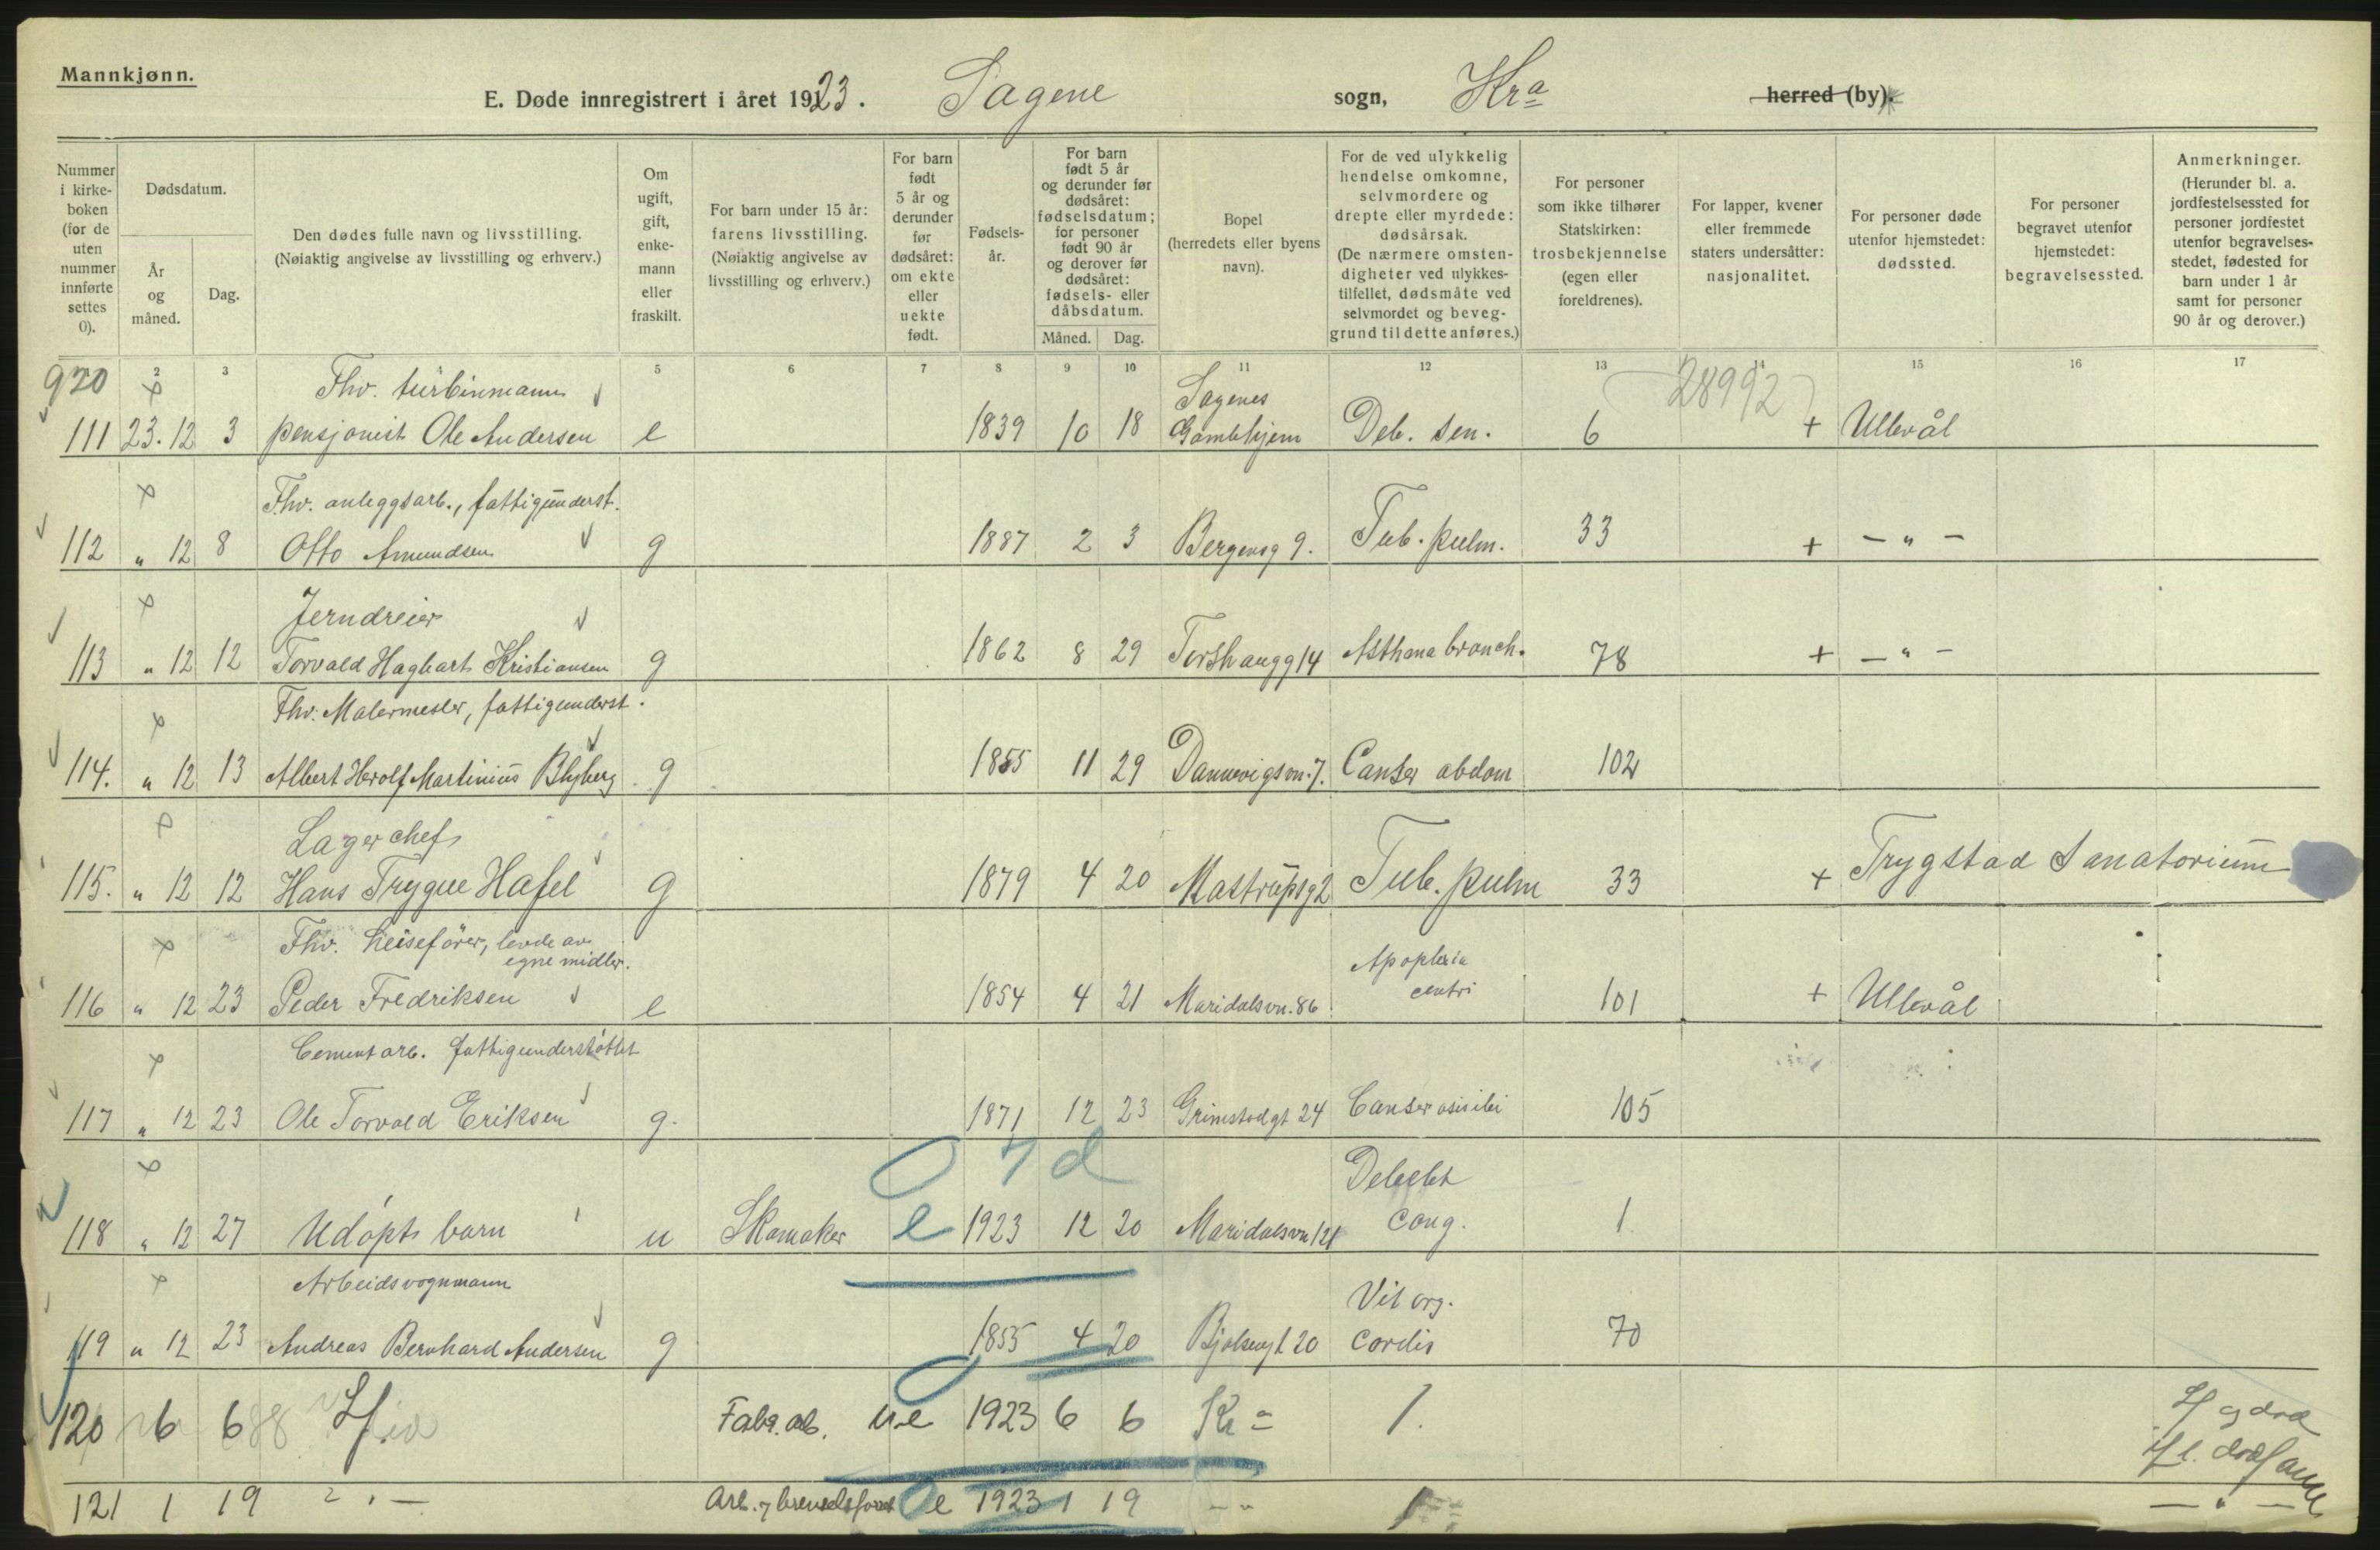 Mannkjønn.
E. Døde innregistrert i året 1923. Sagene sogn, Kra herred (by).
Nummer i kirke-boken (for de uten nummer innførte settes 0).
Dødsdatum.
År og måned.
Dag.
Den dødes fulle navn og livsstilling.
(Nøiaktig angivelse av livsstilling og erhverv.)
Om ugift, gift, enke-mann eller fraskilt.
For barn under 15 år: farens livsstilling.
(Nøiaktig angivelse av livsstilling og erhverv.)
For barn født 5 år og derunder før dødsåret: om ekte eller uekte født.
Fødsels-år.
For barn født 5 år og derunder før dødsåret: fødselsdatum; for personer født 90 år og derover før dødsåret: fødsels- eller dåbsdatum.
Måned. Dag.
Bopel (herredets eller byens navn).
For de ved ulykkelig hendelse omkomne, selvmordere og drepte eller myrdede: dødsårsak.
(De nærmere omsten-digheter ved ulykkes-tilfellet, dødsmåte ved selvmordet og beveg-grund til dette anføres.)
For personer som ikke tilhører Statskirken: trosbekjennelse (egen eller foreldrenes).
For lapper, kvener eller fremmede staters undersåtter: nasjonalitet.
For personer døde utenfor hjemstedet: dødssted.
For personer begravet utenfor hjemstedet: begravelsessted.
Anmerkninger.
(Herunder bl. a. jordfestelsessted for personer jordfestet utenfor begravelses-stedet, fødested for barn under 1 år samt for personer 90 år og derover.)
2 3 5 6 7 8 9 10 11 12 13 14 15 16 17
920 Thv. turbinmann Sagenes 28992
111 23. 12 3 pensjonist Ole Andersen e 1839 10 18 Gamlehjem Deb. sen. 6 + Ullevål
Fhv. anleggsarb., fattigunderst.
112 " 12 8 Otto Amundsen g 1887 2 3 Bergensg 9. Tub. pulm. 33 + — " —
Jerndreier
113 " 12 12 Torvald Hagbart Kristiansen g 1862 8 29 Torshaugg 14 Asthma bronch. 78 + — " —
Fhv. Malermester, fattigunderst.
114. " 12 13 Albert Herolf Martinius Blyberg g 1855 11 29 Dannevigsvn. 7. Canser abdom 102
Lagerchef
115. " 12 12 Hans Trygve Hafel g 1879 4 20 Mastrupsg 2 Tub. pulm 33 + Trygstad Sanatorium
Fhv. heisefører, levde av egne midler.
116 " 12 23 Peder Fredriksen e 1854 4 21 Maridalsvn. 86 Apoplexia centri 101 + Ullevål
Cementarb. fattigunderstøttet
117 " 12 23 Ole Torvald Eriksen g. 1871 12 23 Grimstadgt 24 Canser 105
0 7 d
118 " 12 27 Udøpt barn u Skomaker e 1923 12 20 Maridalsvn 121 Debilit cong. 1
Arbeidsvognmann
119 " 12 23 Andreas Bernhard Andersen g 1855 4 20 Bjølsengt 20 Vit org. cordis 70
120 6 6 Fabr. arb. u.e 1923 6 6 Kra 1.
121 1 19 " — Arb. e 1923 1 19 — " 1 — " —